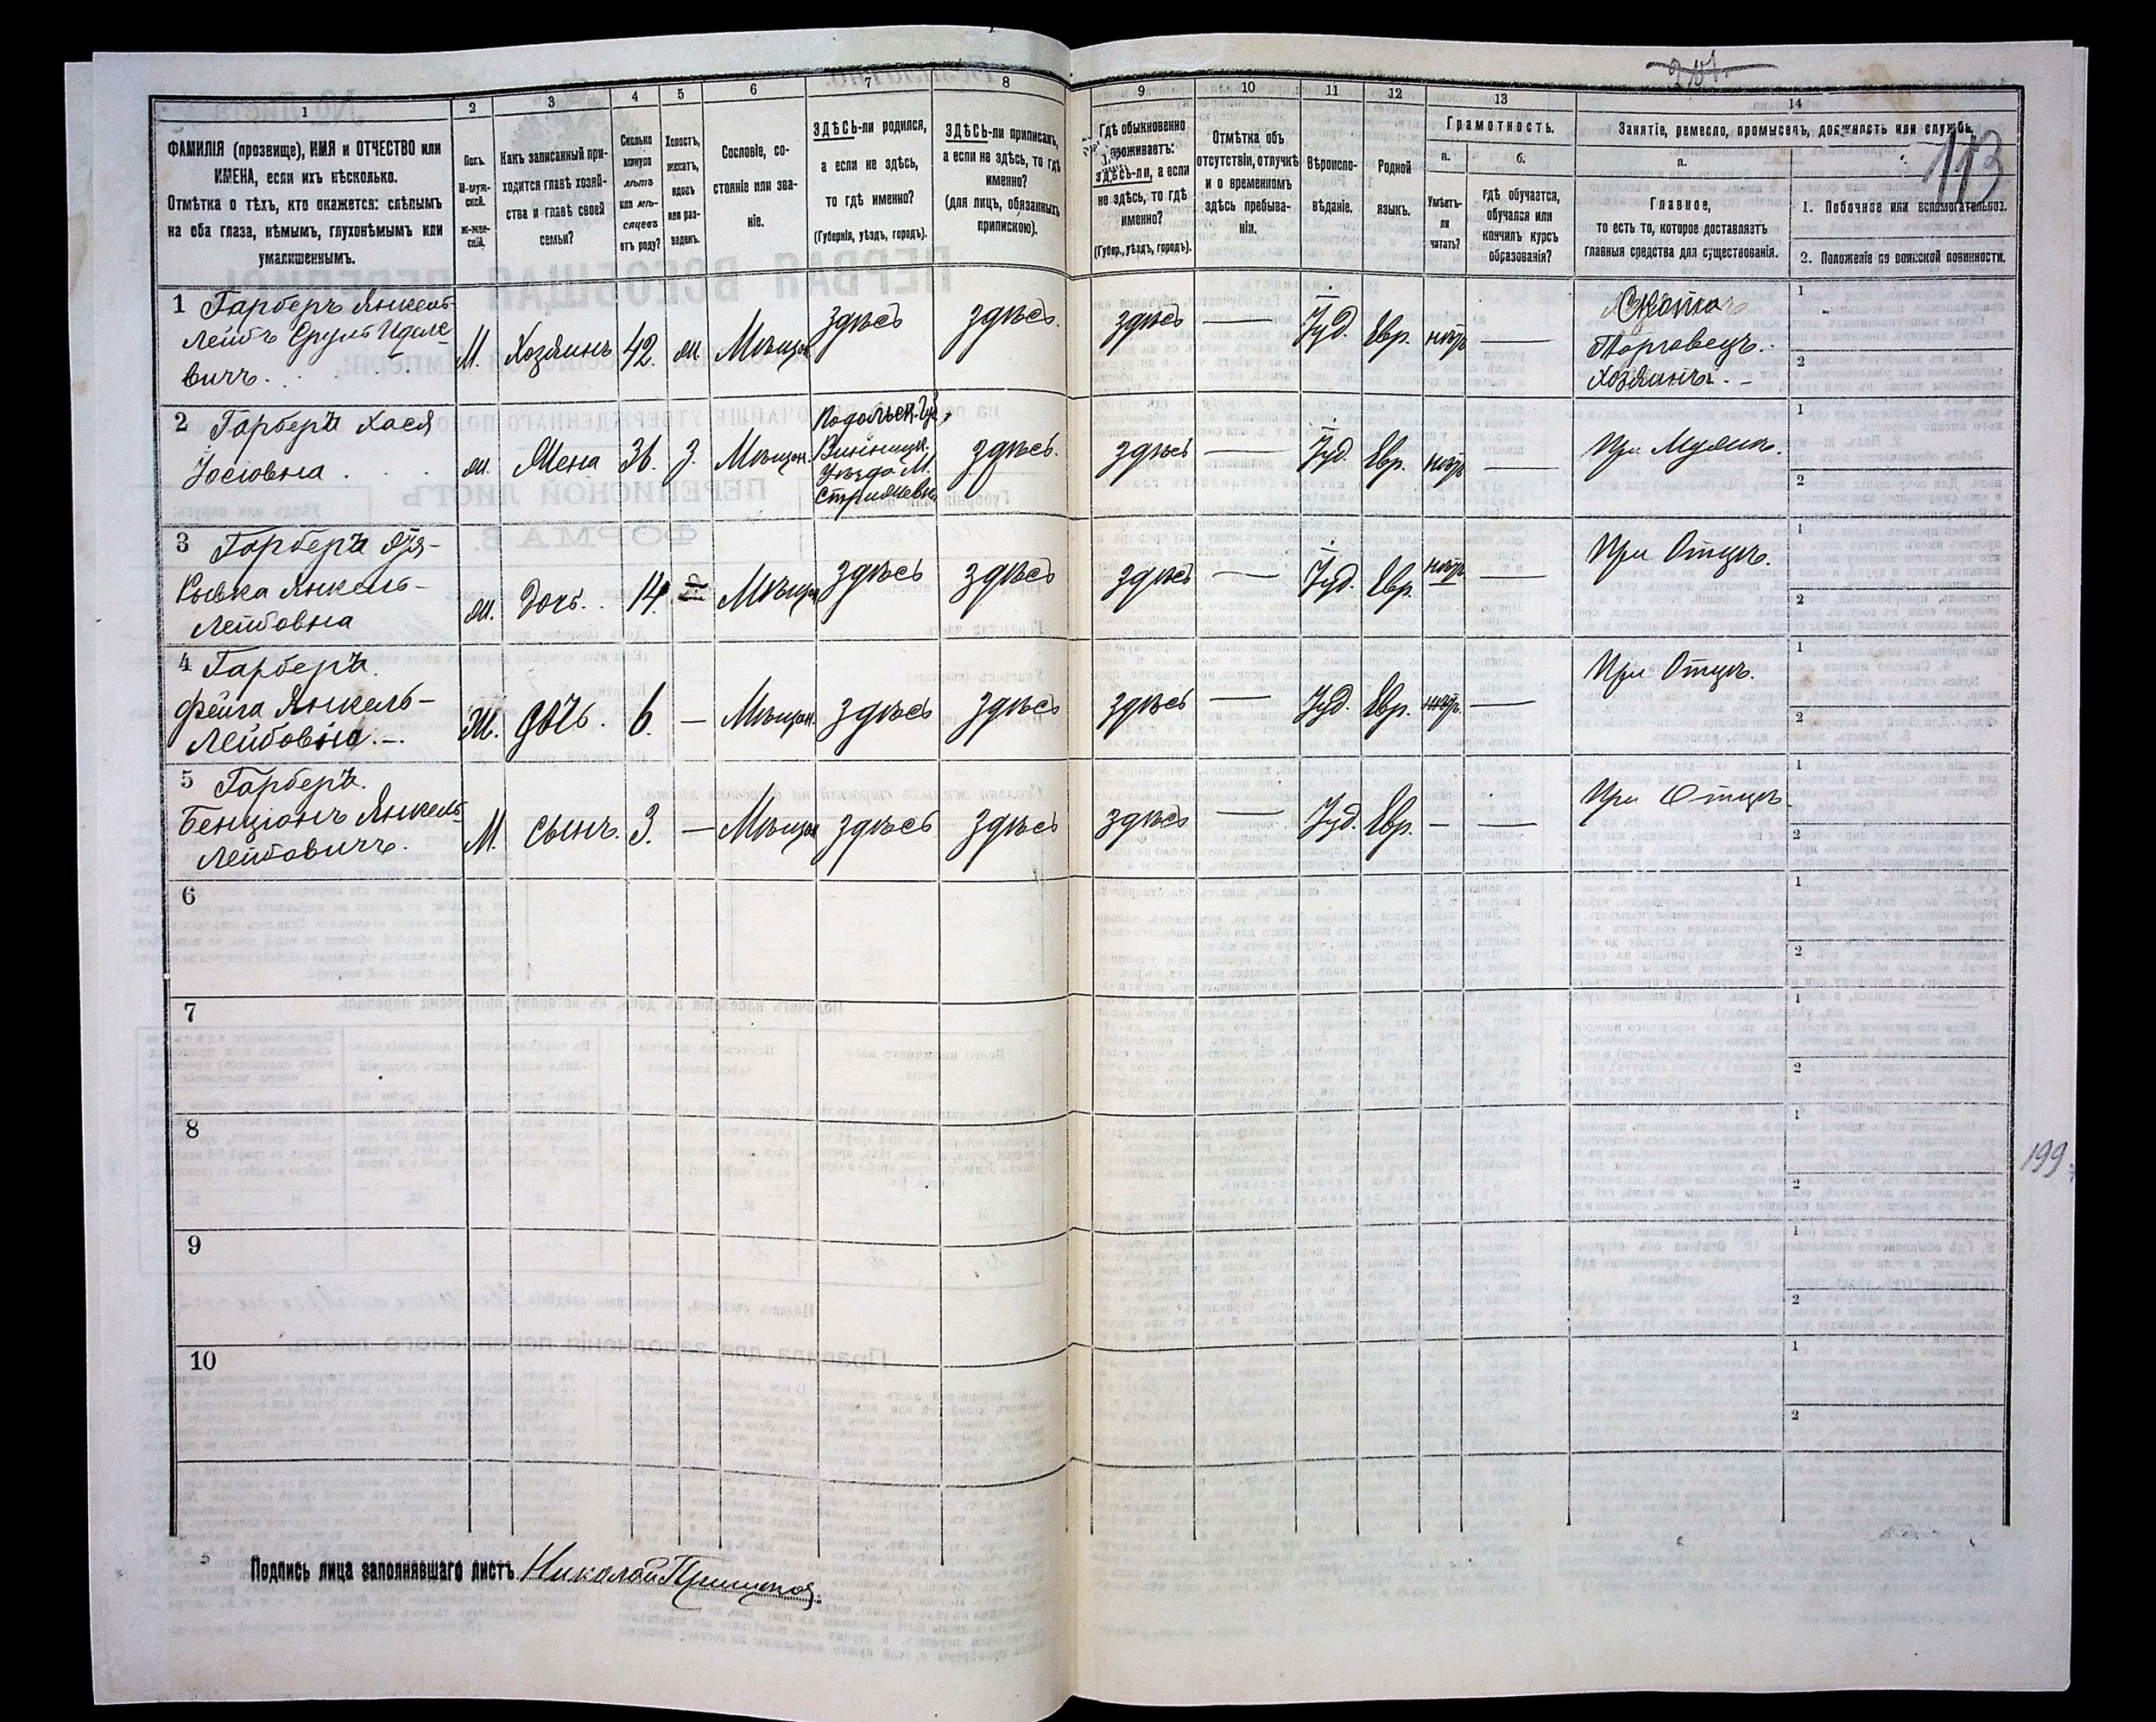 113
1
2
3
4
5
6
7
8
9
10
11
12
13
14
ФАМИЛІЯ (прозвище), ИМЯ и ОТЧЕСТВО или
ИМЕНА, если ихъ нѣсколько.
Отмѣтка о тѣхъ, кто окажется: слѣпымъ
на оба глаза, нѣмымъ, глухонѣмымъ или
умалишеннымъ.
Полъ.
М-муж-
ской.
Ж-жен-
скій.
Какъ записанный при-
ходится главѣ хозяй-
ства и главѣ своей
семьи?
Сколько
минуло
лѣтъ
или мѣ-
сяцевъ
отъ роду?
Холостъ,
женатъ,
вдовъ
или раз-
веденъ.
Сословіе, со-
стояніе или зва-
ніе.
ЗДѢСЬ-ли родился,
а если не здѣсь,
то гдѣ именно?
(Губернія, уѣздъ, городъ).
ЗДѢСЬ-ли приписанъ,
а если не здѣсь, то гдѣ
именно?
(для лицъ, обязанныхъ
припискою).
Гдѣ обыкновенно
проживаетъ:
ЗДѢСЬ-ли, а если
не здѣсь, то гдѣ
именно?
(Губер., уѣздъ, городъ).
Отмѣтка объ
отсутствіи, отлучкѣ
и о временномъ
здѣсь пребыва-
ніи.
Вѣроиспо-
вѣданіе.
Родной
языкъ.
Грамотность.
а.
Умѣетъ-
ли
читать?
б.
гдѣ обучается,
обучался или
кончилъ курсъ
образованія?
Занятіе, ремесло, промыселъ, должность или служба.
а.
Главное,
то есть то, которое доставляетъ
главныя средства для существованія.
1. Побочное или вспомогательное.
2. Положеніе по воинской повинности.
1 Гарберъ Янкель-
Лейбъ Сруль
вичъ.
М. Хозяинъ 42. ж Мѣщан здѣсь здѣсь. здѣсь — Іуд. Евр. нѣтъ —
Торговецъ.
Хозяинъ. -
1
2
2 Гарберъ Хася
Іосіовна
ж. Жена 36. З. Мѣщан.
Подольск. Губ,
Винницк.
Уѣзда М.
Стрижевка
здѣсь. здѣсь — Іуд. Евр. нѣтъ — При Мужѣ.
1
2
3 Гарберъ
Рывка Янкель-
Лейбовна
ж. Дочь. 14. Мѣщан здѣсь здѣсь здѣсь — Іуд. Евр. нѣтъ — При Отцѣ.
1
2
4 Гарберъ.
Фейга Янкель-
Лейбовна. -
Ж. дочь. 6. — Мѣщан. здѣсь здѣсь здѣсь — Іуд. Евр. нѣтъ. — При Отцѣ.
1
2
5 Гарберъ.
Бенціонъ Янкель
Лейбовичъ.
М. сынъ. 3. — Мѣщан здѣсь здѣсь здѣсь — Іуд. Евр. — — При Отцѣ.
1
2
6
1
2
7
1
2
8
1
2
199
9
1
2
10
1
2
Подпись лица заполнявшаго листъ Николай